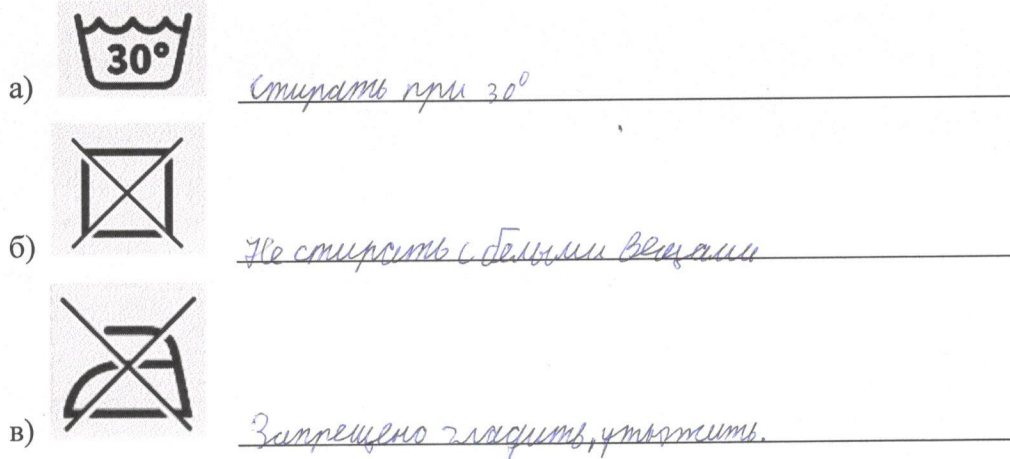 30°
а) Стирать при 30°
б) Не стирать с белыми вещами
в) Запрещено гладить, утюжить.